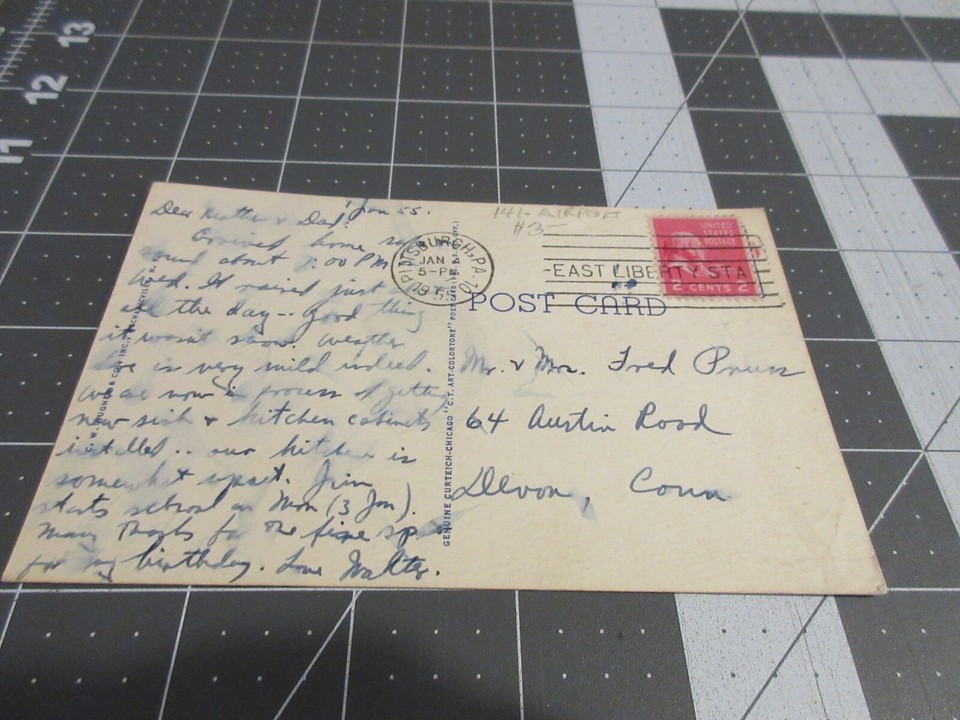 13
12
11
1 Jan 55.
Dear Mother & Dad:
Arrived home safe
about :00 PM
tired. It rained just
the day -- Good thing
it wasn't snow. Weather
is very mild indeed.
we are now in process of getting
new sink & kitchen cabinets
installed .. our kitchen is
somewhat upset. Jim
starts school on Mon (3 Jan).
Many thanks for the fine
for my birthday. Love Walter.
GENUINE CURTEICH-CHICAGO "C.T. ART-COLORTONE" POST CARD
PITTSBURGH, PA. 10
JAN
5-PM
1955
$3-
EAST LIBERTY STA
UNITED
STATES
POSTAGE
2 CENTS 2
POST CARD
Mr. & Mrs. Fred
64 Austin Road
Devon, Conn